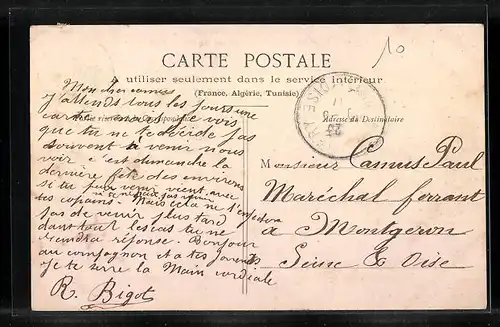 10
CARTE POSTALE
A utiliser seulement dans le service intérieur
(France, Algérie, Tunisie)
Partie réservée à la Correspondance
Adresse du Destinataire
Mon cher camus
J'attends tous les jours une
carte mais je vois
que tu ne te décide pas
souvent a venir nous
voir c'est dimanche la
dernière fête des environs
si tu peux venir vient avec
tes copains Mais cela ne t'empêche
pas de venir plus tard
dans tout les cas tu me
rendra réponse. Bonjour
au compagnon et a tes parents
Je te serre la Main cordiale
R. Bigot
Monsieur Camus Paul
Maréchal ferrant
a Montgeron
Seine & Oise